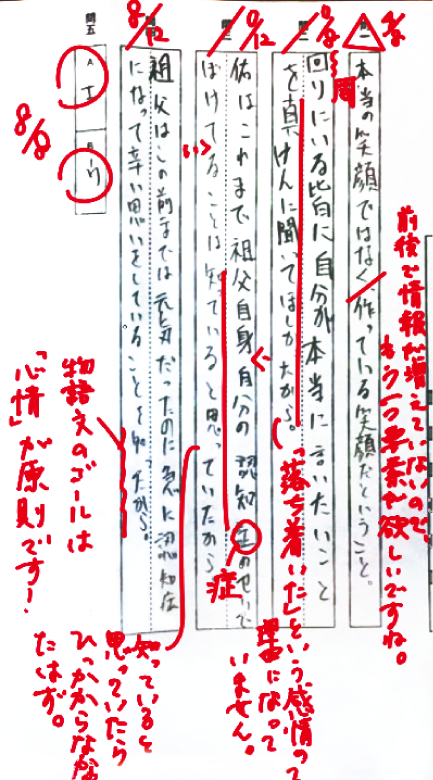 問一
本当の笑顔ではなく、作っている笑顔だということ。
前後で情報が増えていないので、
もう一つ要素が欲しいですね。
問二
回りにいる皆に自分が本当に言いたいこと
を真けんに聞いてほしかったから。
周
「落ち着いた」という感情の
理由になって
いません。
問三
佑はこれまで祖父自身自分の認知正のせいで
ぼけてることは知っていると思っていたから
い
症
知っていると
思っていたら
ひっかからなか
たはず。
問四
祖父はこの前までは元気だったのに急に認知症
になって辛い思いをしていることを知ったから。
8/12
物語文のゴールは
「心情」が原則です!
問五
A
エ
B
ウ
8/8